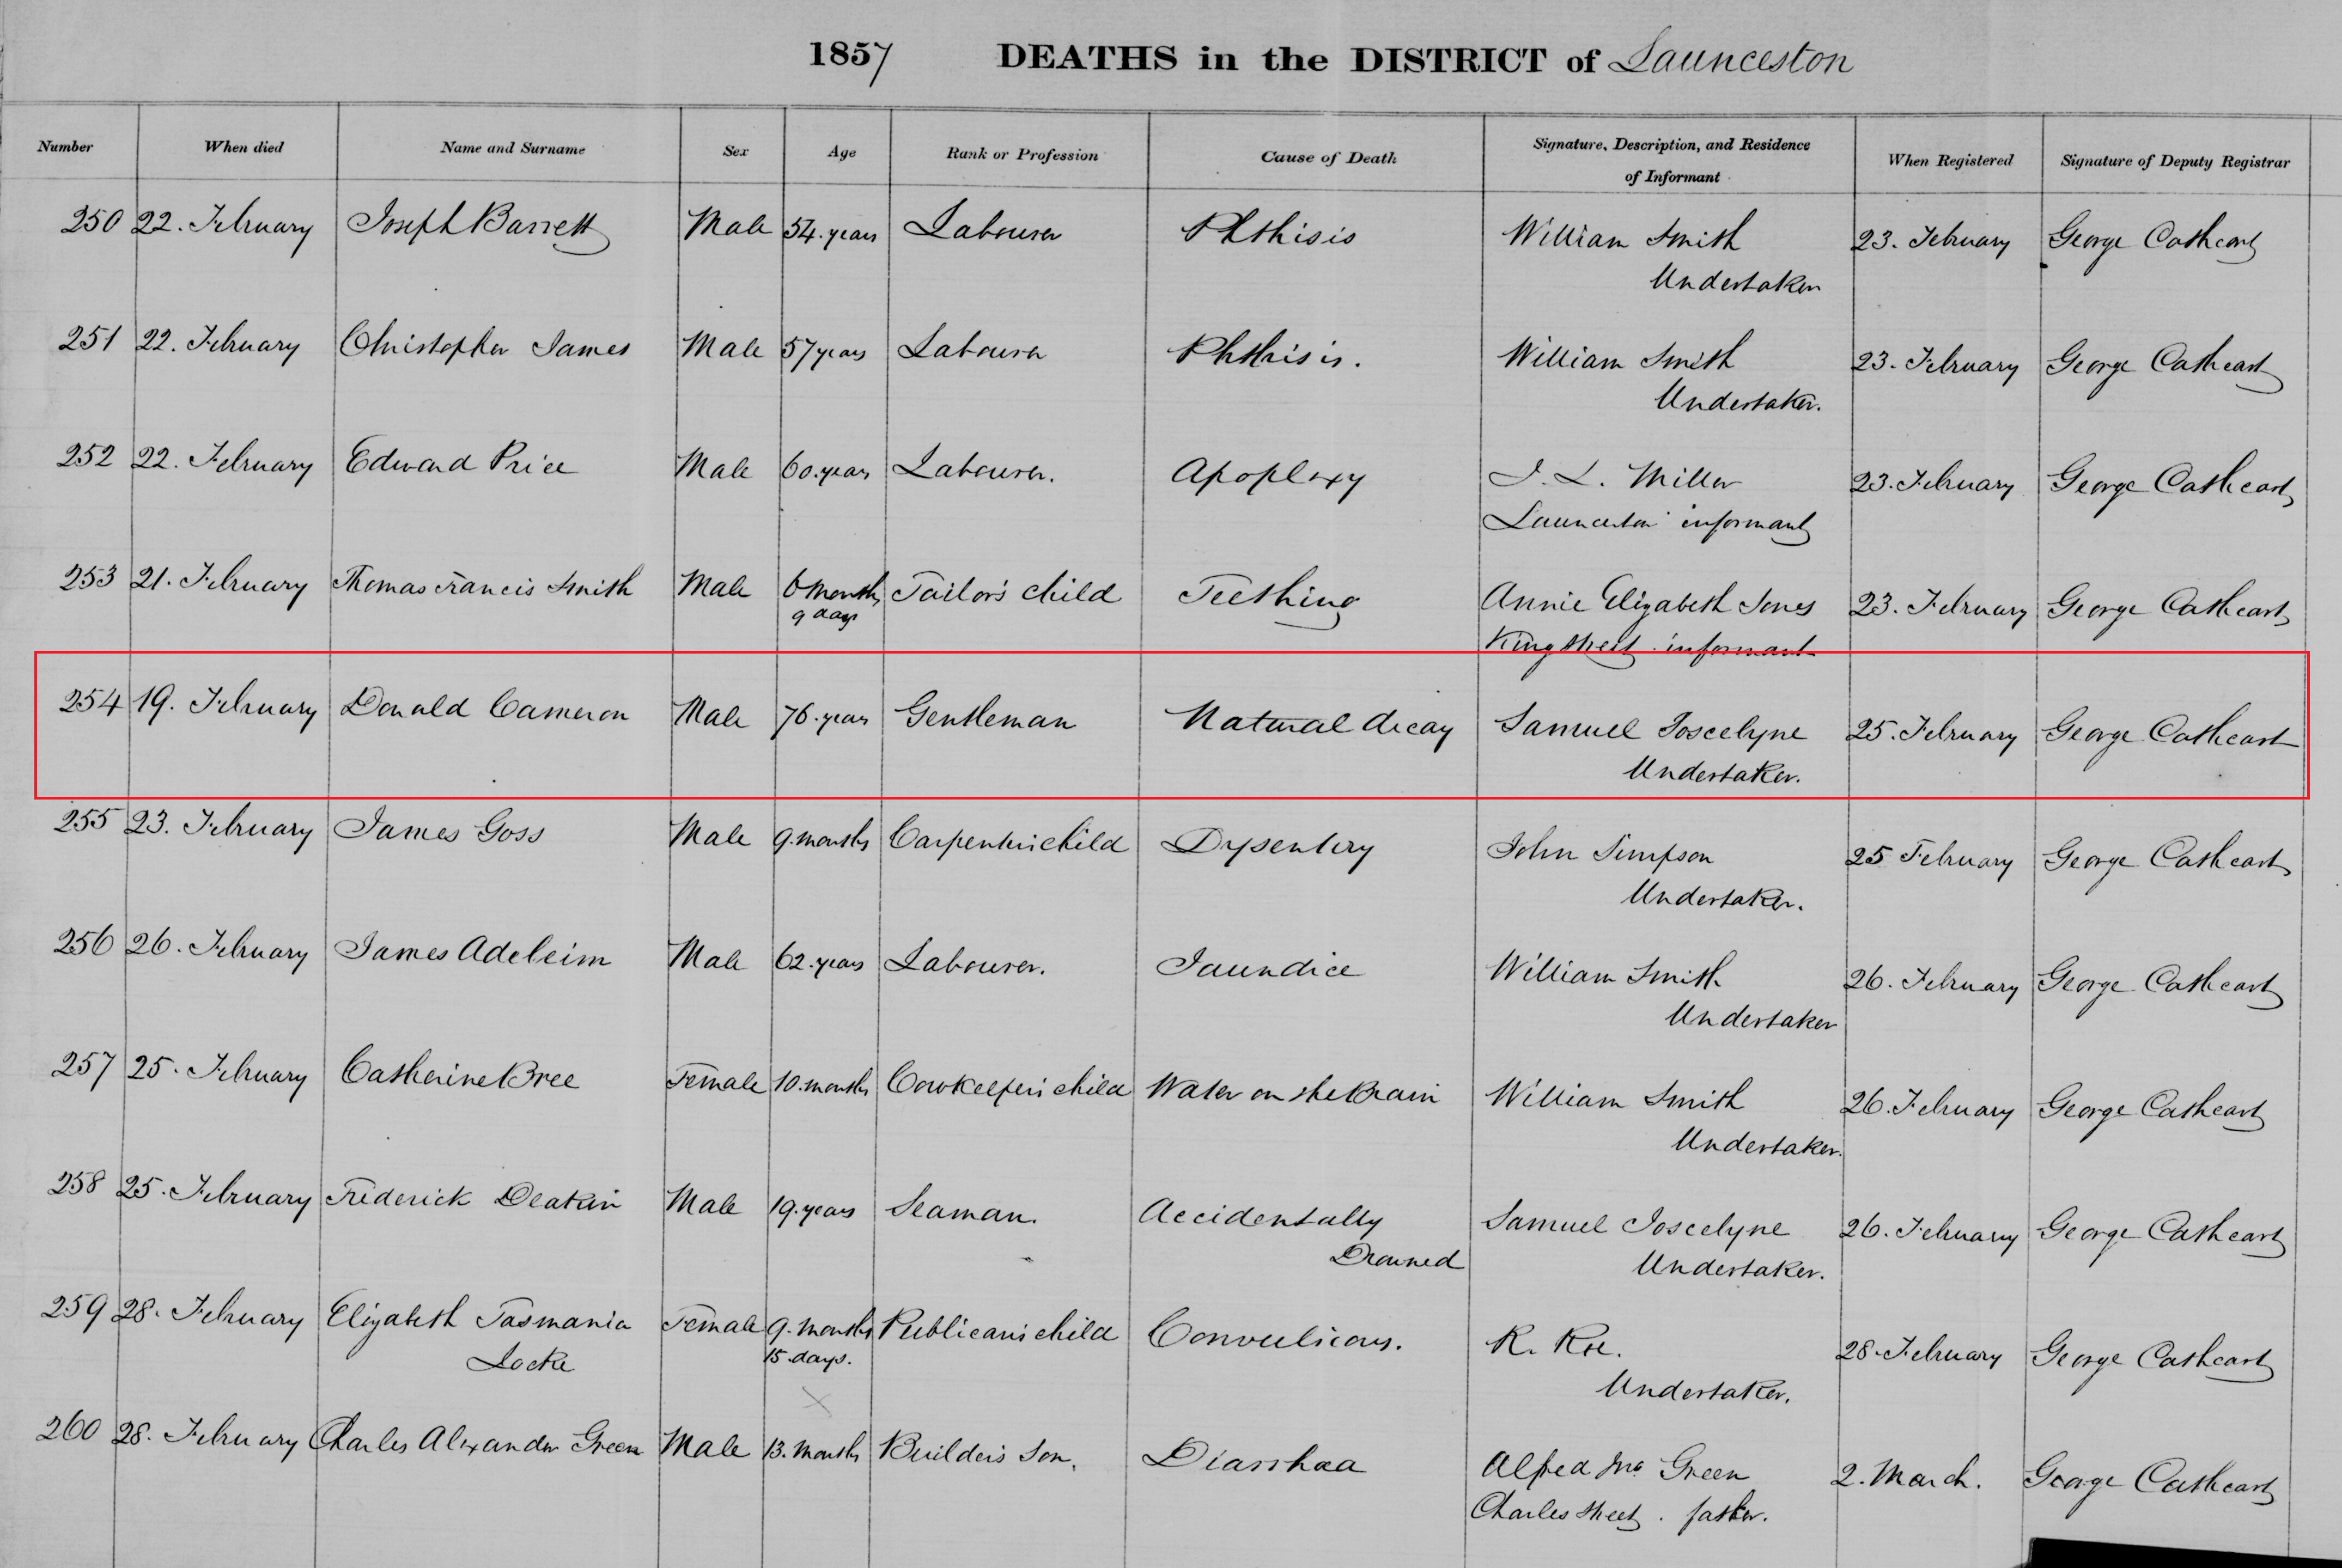 1857 DEATHS in the DISTRICT of Launceston
Number When died Name and Surname Sex Age Rank or Profession Cause of Death Signature, Description, and Residence of Informant When Registered Signature of Deputy Registrar
250 22. February Joseph Barrett Male 54. years Labourer Phthisis William Smith 23. February George Cathcart
Undertaker
251 22. February Christopher James Male 57 years Labourer Phthisis. William Smith 23. February George Cathcart
Undertaker.
252 22. February Edward Price Male 60. years Labourer. Apoplexy J. L. Miller 23. February George Cathcart
Launceston informant
253 21. February Thomas Francis Smith Male 6 months Tailor's child Teething Annie Elizabeth Jones 23. February George Cathcart
9 days King Street. informant
254 19. February Donald Cameron Male 76. years Gentleman Natural decay Samuel Joscelyne 25. February George Cathcart
Undertaker.
255 23. February James Goss Male 9. months Carpenter's child Dysentery John Simpson 25 February George Cathcart
Undertaker.
256 26. February James Adeleim Male 62. years Labourer. Jaundice William Smith 26. February George Cathcart
Undertaker
257 25. February Catherine Bree Female 10. months Cowkeeper's child Water on the Brain William Smith 26. February George Cathcart
Undertaker.
258 25. February Frederick Deakin Male 19. years Seaman. Accidentally Samuel Joscelyne 26. February George Cathcart
Drowned Undertaker.
259 28. February Elizabeth Tasmania Female 9. months Publican's child Convulsions. R. Roe. 28. February George Cathcart
Locke 15. days. Undertaker.
260 28. February Charles Alexander Green Male 13. months Builder's Son. Diarrhaa Alfred Jno. Green 2. March. George Cathcart
Charles Street. father.